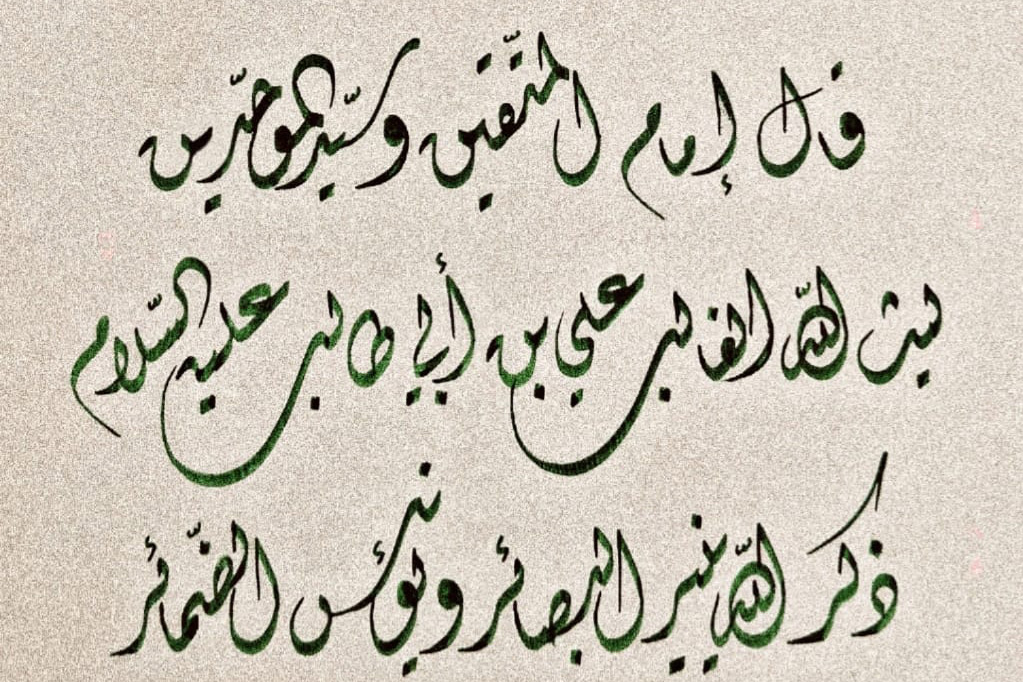 قال إمام المتّقين وسيّد الموحّدين
ليث اللّه الغالب علي بن أبي طالب عليه السّلام
ذكر اللّه ينير البصائر ويؤنس الضّمائر